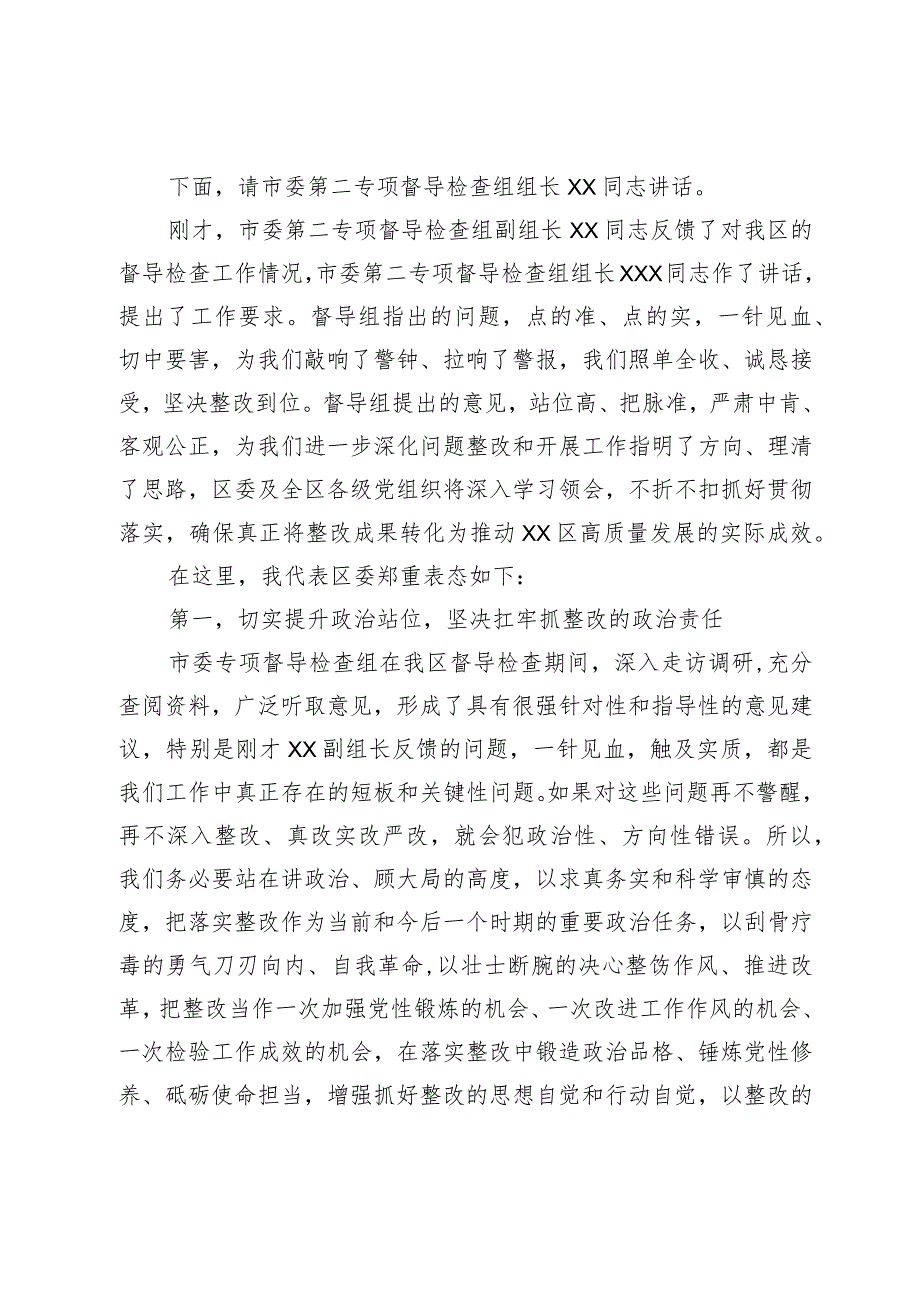 下面，请市委第二专项督导检查组组长 XX 同志讲话。
刚才，市委第二专项督导检查组副组长 XX 同志反馈了对我区的
督导检查工作情况,市委第二专项督导检查组组长 XXX 同志作了讲话，
提出了工作要求。督导组指出的问题，点的准、点的实，一针见血、
切中要害，为我们敲响了警钟、拉响了警报，我们照单全收、诚恳接
受，坚决整改到位。督导组提出的意见，站位高、把脉准，严肃中肯、
客观公正，为我们进一步深化问题整改和开展工作指明了方向、理清
了思路，区委及全区各级党组织将深入学习领会，不折不扣抓好贯彻
落实，确保真正将整改成果转化为推动 XX 区高质量发展的实际成效。
在这里，我代表区委郑重表态如下：
第一，切实提升政治站位，坚决扛牢抓整改的政治责任
市委专项督导检查组在我区督导检查期间，深入走访调研,充分
查阅资料，广泛听取意见，形成了具有很强针对性和指导性的意见建
议，特别是刚才 XX 副组长反馈的问题，一针见血，触及实质，都是
我们工作中真正存在的短板和关键性问题。如果对这些问题再不警醒，
再不深入整改、真改实改严改，就会犯政治性、方向性错误。所以，
我们务必要站在讲政治、顾大局的高度，以求真务实和科学审慎的态
度，把落实整改作为当前和今后一个时期的重要政治任务，以刮骨疗
毒的勇气刀刃向内、自我革命,以壮士断腕的决心整饬作风、推进改
革，把整改当作一次加强党性锻炼的机会、一次改进工作作风的机会、
一次检验工作成效的机会，在落实整改中锻造政治品格、锤炼党性修
养、砥砺使命担当，增强抓好整改的思想自觉和行动自觉，以整改的